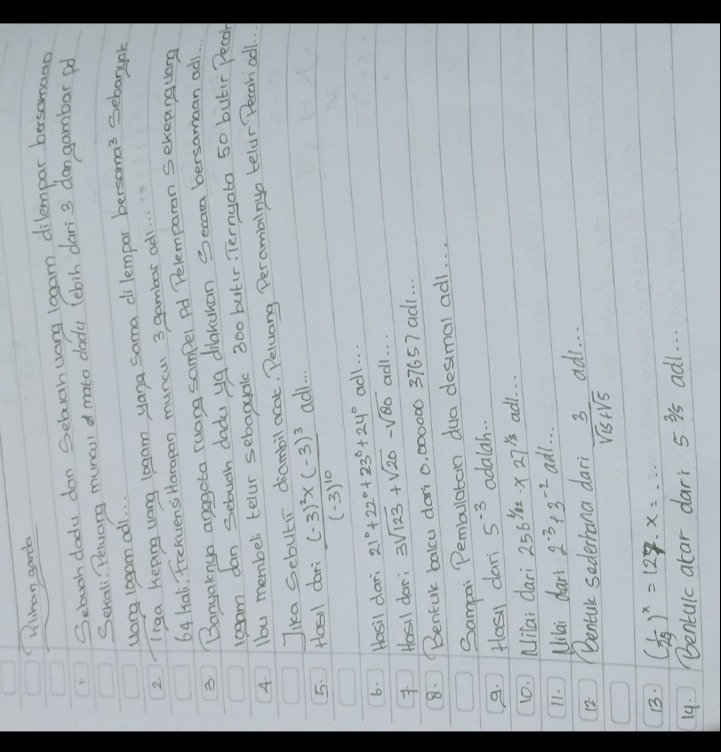 Pilihan ganda
1. Sebuah dadu dan Sebuah uang logam dilempar bersamaan
Sekali. Peluang muncul mata dadu lebih dari 3 dan gambar pd
uang logam adl...
2. Tiga keping uang logam yang sama dilempar bersama² Sebanyak
64 kali. Frekuensi Harapan muncul 3 gambar adl...
3. Banyaknya anggota ruang sampel pd Pelemparan Sekeping uang
logam dan Sebuah dadu yg dilakukan Secara bersamaan adl...
4. Ibu membeli telur sebanyak 300 butir. Ternyata 50 butir Pecah
Jika Sebutir diambil acak. Peluang Terambilnya telur Pecah adl...
5. Hasil dari (-3)² x (-3)³ / (-3)¹⁰ adl...
6. Hasil dari 21⁰ + 22⁰ + 23⁰ + 24⁰ adl...
7. Hasil dari 3√123 + √20 - √80 adl...
8. Bentuk baku dari 0.000000 37657 adl...
Sampai Pembulatan dua desimal adl...
9. Hasil dari 5⁻³ adalah..
10. Nilai dari 256^1/2 x 27^1/3 adl...
11. Nilai dari 2⁻³ + 3⁻² adl...
12. Bentuk Sederhana dari 3 / √13+√5 adl...
13. (1/25)^x = 127. x = ....
14. Bentuk akar dari 5^3/5 adl...